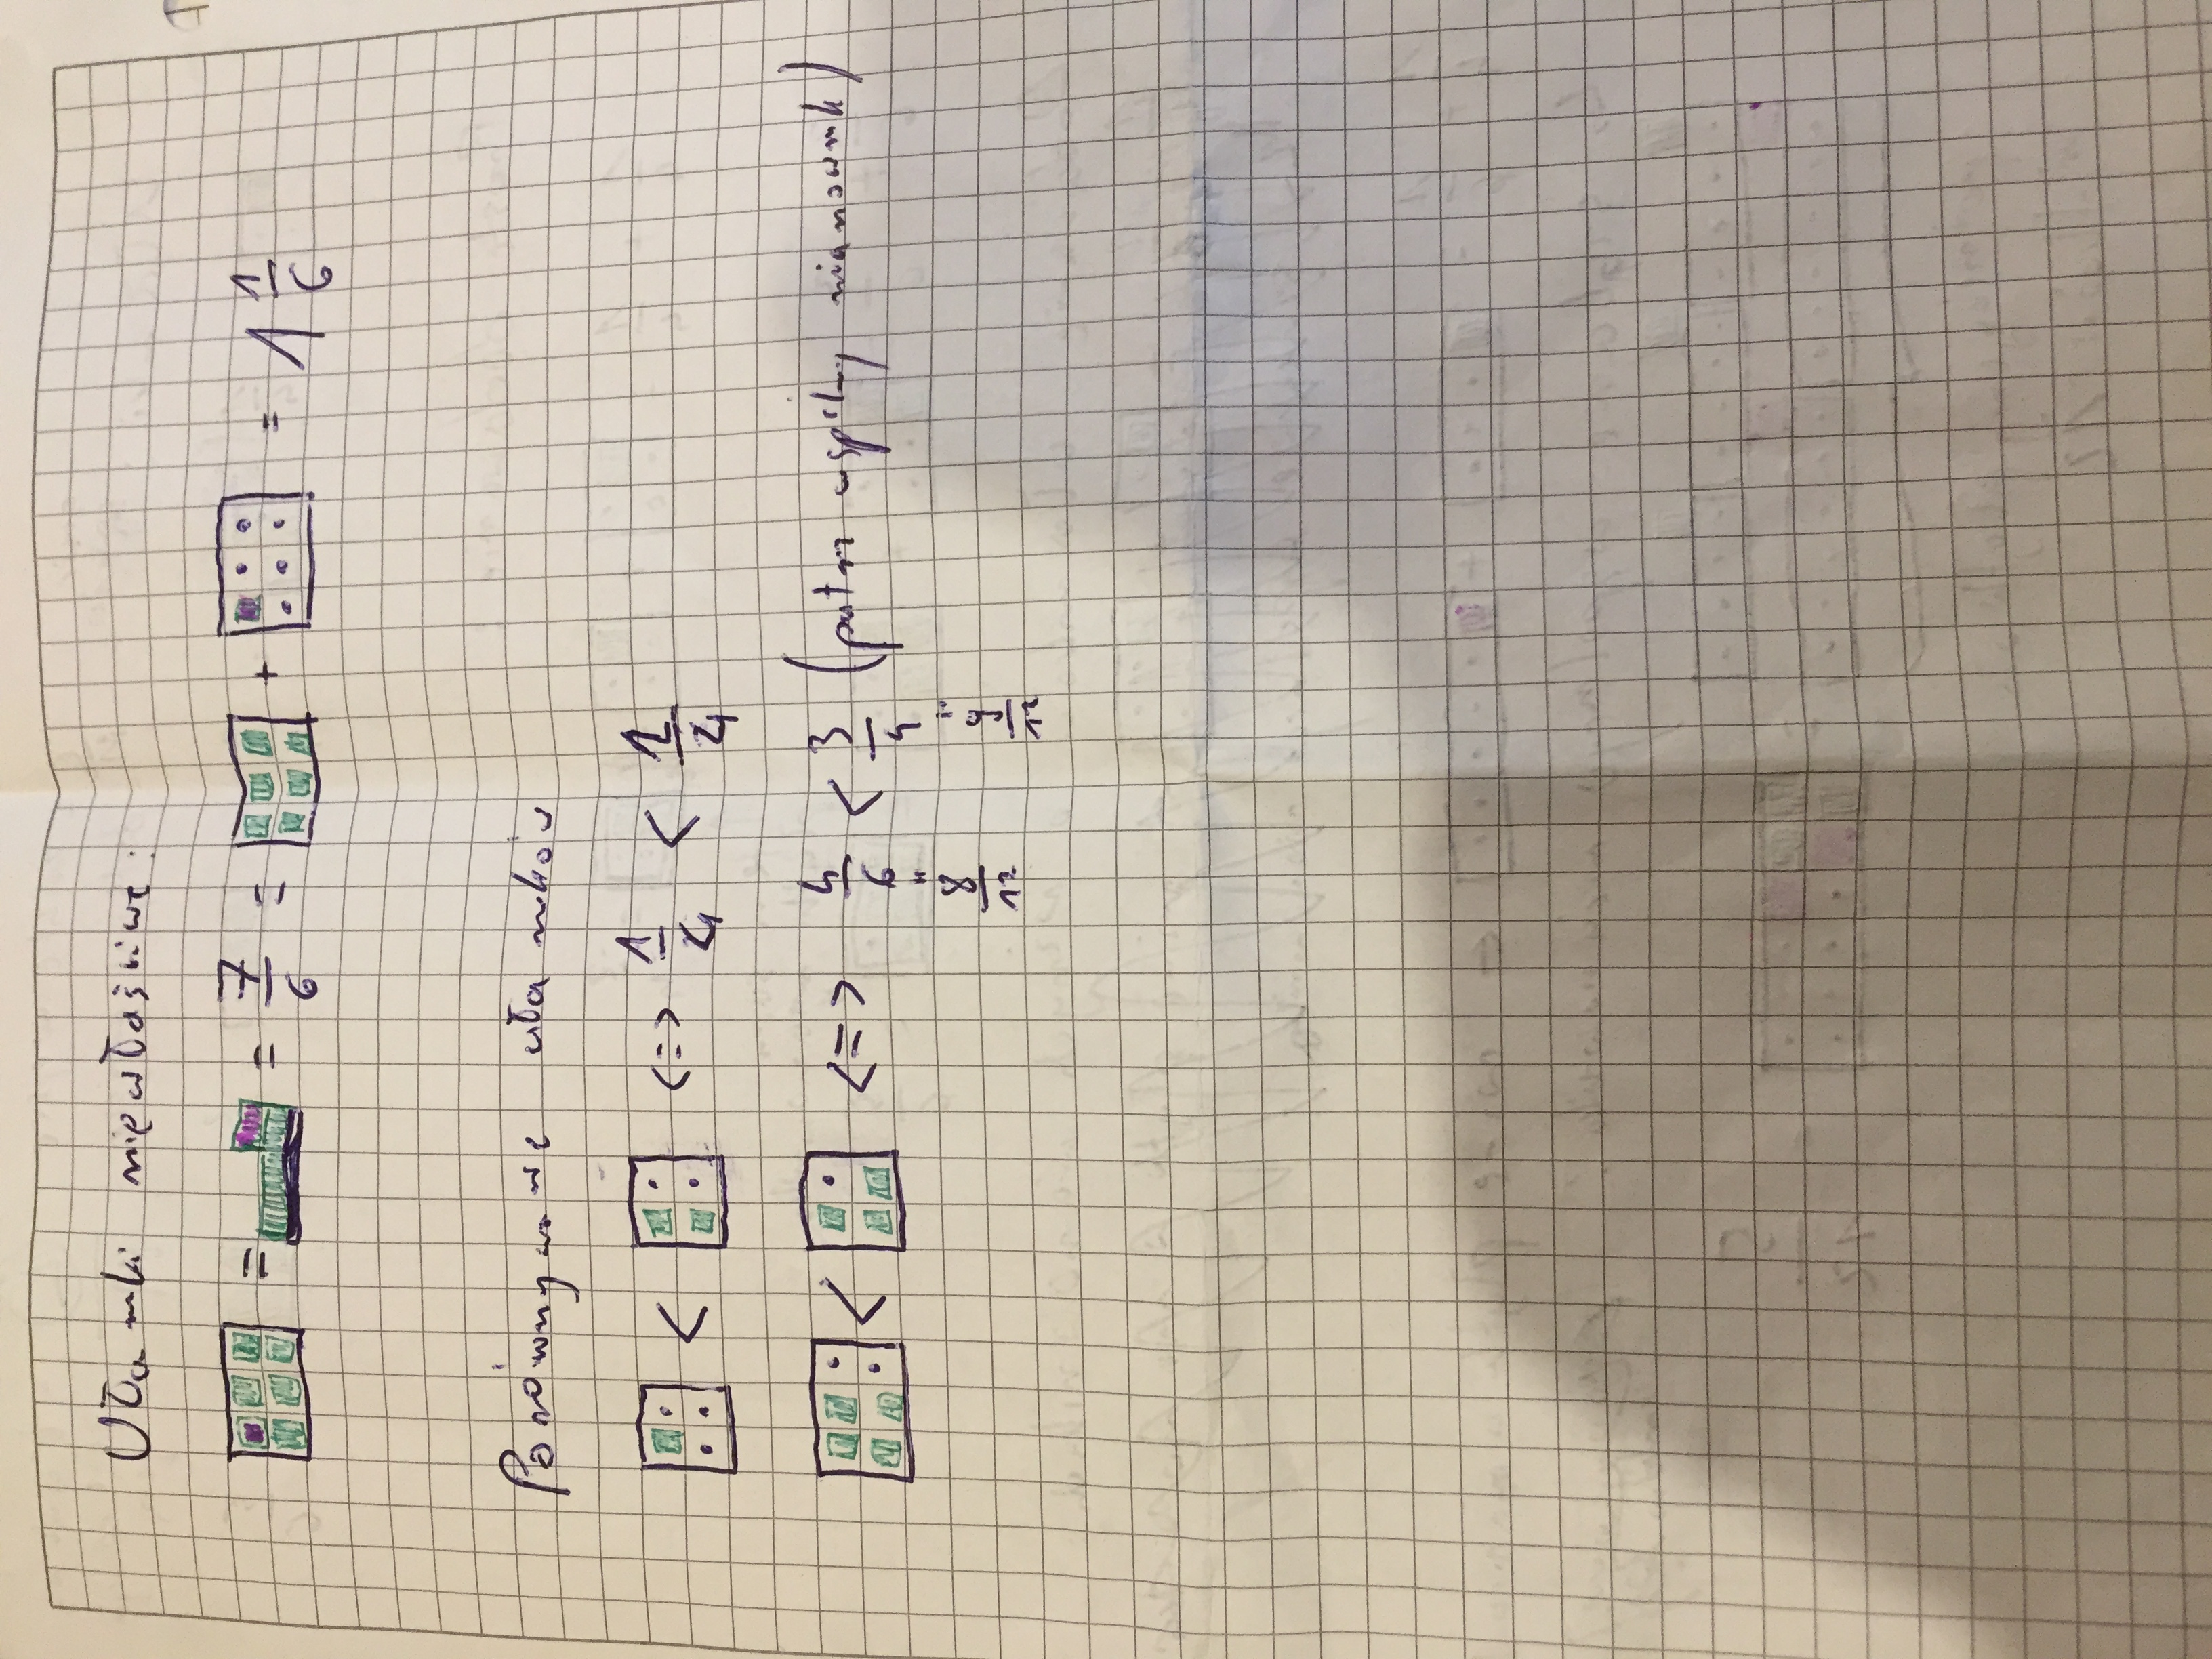 Ułamki niewłaściwe:
= = 7/6 = + = 1 1/6
Porównywanie ułamków
< <=> 1/4 < 2/4
< <=> 4/6 < 3/4 (patrz wspólny mianownik)
= =
8/12 9/12